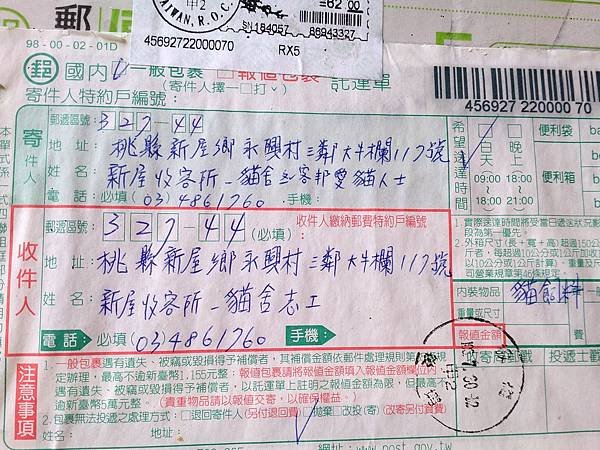 郵
甲2
TAIWAN, R.O.C.
62 00
SN184057 86943327
45692722000070 RX5
98-00-02-01D
郵 國內 一般包裹 □報值包裹 託運單
(寄件人擇一□打ˇ)
寄件人特約戶編號:
456927 220000 70
寄件人
郵遞區號: 327-44
地址: 桃縣新屋鄉永興村三鄰大牛欄117號
姓名: 新屋收容所_貓舍
邦愛貓人士
電話: (03)4861760 手機:
希望送達時間
白天 晚上
09:00 18:00
18:00 21:00
便利袋
便利箱
收件人
郵遞區號: 327-44 (必填) 收件人繳納郵費特約戶編號
地址: 桃縣新屋鄉永興村三鄰大牛欄117號
姓名: 新屋收容所_貓舍志工
電話: 必填(03)4861760 手機:
1.實際送達時間將受當日遞送狀況影
段為第一優先。
2.外箱尺寸(長+寬+高)超過150公
斤者,每超過10公分加收1
以10公分或1公斤計算,重量及尺
司營業規章第46條規定。
內裝物品 貓飼料
重量或尺寸
報值金額
寄局郵戳 投遞士戳
注意事項
1.一般包裹遇有遺失、被竊或毀損得予補償者,其補償金額依郵件處理規則第
定辦理,最高不逾新臺幣1,155元整;報值包裹請將報值金額填入報值金額欄位內
遇有遺失、被竊或毀損得予補償者,以託運單上註明之報值金額為限,但最高不
逾新臺幣5萬元整。(貴重物品請以報值交寄,以確保權益。)
2.包裹無法投遞之處理方式:□退回寄件人(另付退回費) □拋棄□改投(寄)(改寄另付費)
姓名: 地址:
網址: www.post.gov.tw